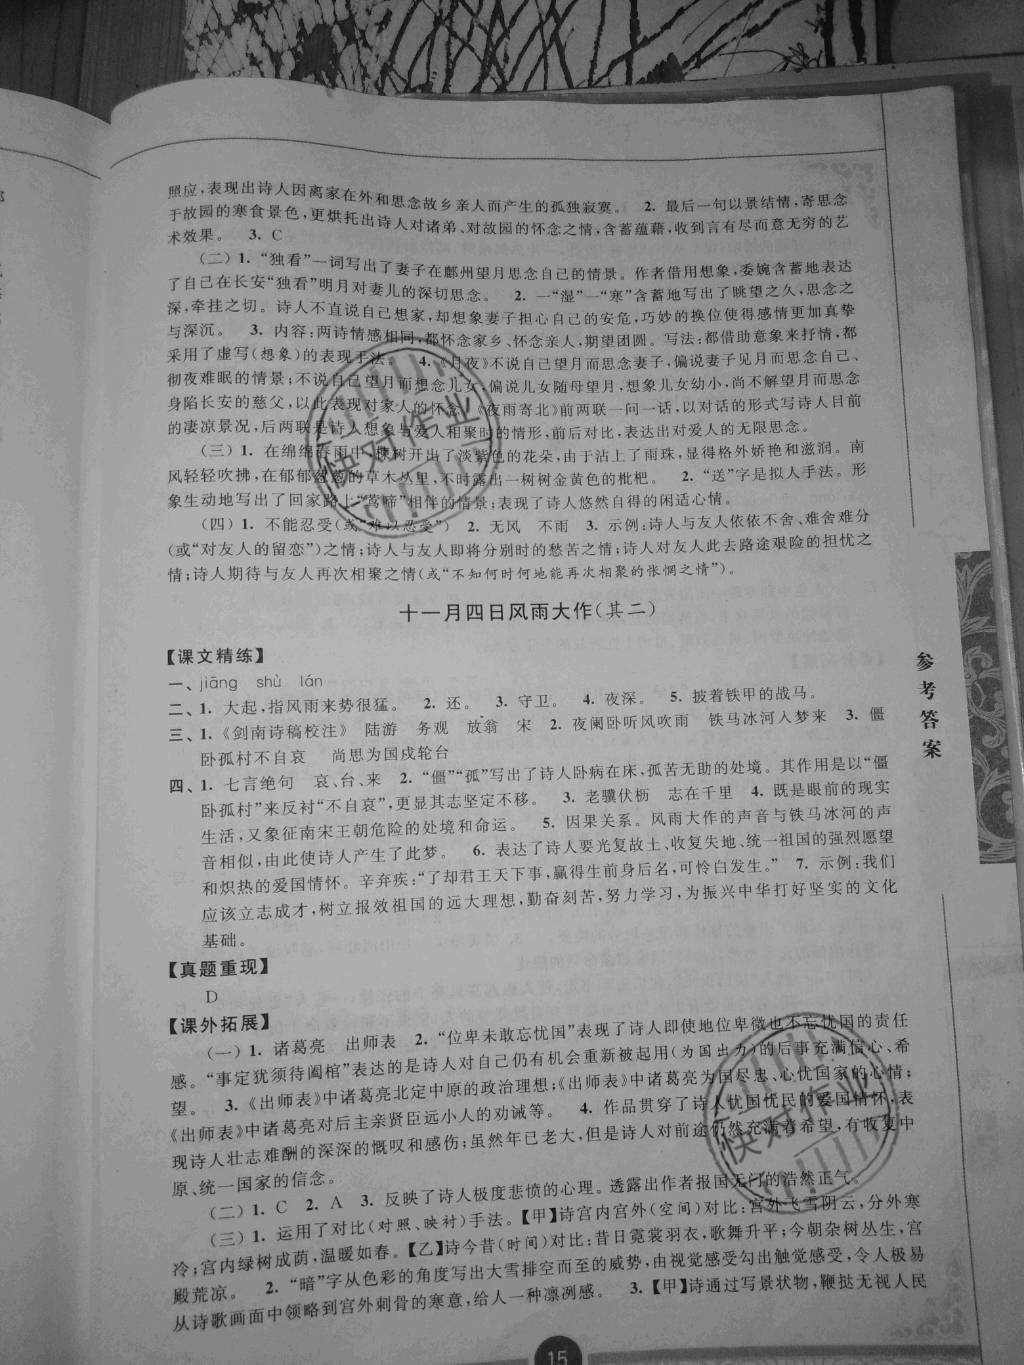 照应,表现出诗人因离家在外和思念故乡亲人而产生的孤独寂寞。 2. 最后一句以景结情,寄思念
于故园的寒食景色,更烘托出诗人对诸弟、对故园的怀念之情,含蓄蕴藉,收到言有尽而意无穷的艺
术效果。 3. C
(二) 1. “独看”一词写出了妻子在鄜州望月思念自己的情景。作者借用想象,委婉含蓄地表达
了自己在长安“独看”明月对妻儿的深切思念。 2. 一“湿”一“寒”含蓄地写出了眺望之久,思念之
深,牵挂之切。诗人不直说自己想家,却想象妻子担心自己的安危,巧妙的换位使得感情更加真挚
与深沉。 3. 内容:两诗情感相同,都怀念家乡、怀念亲人,期望团圆。写法:都借助意象来抒情,都
采用了虚写(想象)的表现手法。 4.《月夜》不说自己望月而思念妻子,偏说妻子见月而思念自己、
彻夜难眠的情景;不说自己望月而想念儿女,偏说儿女随母望月,想象儿女幼小,尚不解望月而思念
身陷长安的慈父,以此表现对家人的怀念。《夜雨寄北》前两联一问一话,以对话的形式写诗人目前
的凄凉景况,后两联是诗人想象与爱人相聚时的情形,前后对比,表达出对爱人的无限思念。
(三) 1. 在绵绵春雨中,楝树开出了淡紫色的花朵,由于沾上了雨珠,显得格外娇艳和滋润。南
风轻轻吹拂,在郁郁葱葱的草木丛里,不时露出一树树金黄色的枇杷。 2. “送”字是拟人手法。形
象生动地写出了回家路上“莺啼”相伴的情景;表现了诗人悠然自得的闲适心情。
(四) 1. 不能忍受(或“难以忍受”) 2. 无风 不雨 3. 示例:诗人与友人依依不舍、难舍难分
(或“对友人的留恋”)之情;诗人与友人即将分别时的愁苦之情;诗人对友人此去路途艰险的担忧之
情;诗人期待与友人再次相聚之情(或“不知何时何地能再次相聚的怅惘之情”)。
十一月四日风雨大作(其二)
【课文精练】
一、jiāng shù lán
二、1. 大起,指风雨来势很猛。 2. 还。 3. 守卫。 4. 夜深。 5. 披着铁甲的战马。
三、1.《剑南诗稿校注》 陆游 务观 放翁 宋 2. 夜阑卧听风吹雨 铁马冰河入梦来 3. 僵
卧孤村不自哀 尚思为国戍轮台
四、1. 七言绝句 哀、台、来 2. “僵”“孤”写出了诗人卧病在床,孤苦无助的处境。其作用是以“僵
卧孤村”来反衬“不自哀”,更显其志坚定不移。 3. 老骥伏枥 志在千里 4. 既是眼前的现实
生活,又象征南宋王朝危险的处境和命运。 5. 因果关系。风雨大作的声音与铁马冰河的声
音相似,由此使诗人产生了此梦。 6. 表达了诗人要光复故土、收复失地、统一祖国的强烈愿望
和炽热的爱国情怀。辛弃疾:“了却君王天下事,赢得生前身后名,可怜白发生。” 7. 示例:我们
应该立志成才,树立报效祖国的远大理想,勤奋刻苦,努力学习,为振兴中华打好坚实的文化
基础。
【真题重现】
D
【课外拓展】
(一) 1. 诸葛亮 出师表 2. “位卑未敢忘忧国”表现了诗人即使地位卑微也不忘忧国的责任
感。“事定犹须待阖棺”表达的是诗人对自己仍有机会重新被起用(为国出力)的后事充满信心、希
望。 3.《出师表》中诸葛亮北定中原的政治理想;《出师表》中诸葛亮为国尽忠、心忧国家的心情;
《出师表》中诸葛亮对后主亲贤臣远小人的劝诫等。 4. 作品贯穿了诗人忧国忧民的爱国情怀,表
现诗人壮志难酬的深深的慨叹和感伤;虽然年已老大,但是诗人对前途仍然充满着希望,有收复中
原、统一国家的信念。
(二) 1. C 2. A 3. 反映了诗人极度悲愤的心理。透露出作者报国无门的浩然正气。
(三) 1. 运用了对比(对照、映衬)手法。【甲】诗宫内宫外(空间)对比:宫外飞雪阴云,分外寒
冷;宫内绿树成荫,温暖如春。【乙】诗今昔(时间)对比:昔日霓裳羽衣,歌舞升平;今朝杂树丛生,宫
殿荒凉。 2. “暗”字从色彩的角度写出大雪排空而至的威势,由视觉感受勾出触觉感受,令人极易
从诗歌画面中领略到宫外刺骨的寒意,给人一种凛冽感。 3.【甲】诗通过写景状物,鞭挞无视人民
参考答案
15
快对作业
快对作业